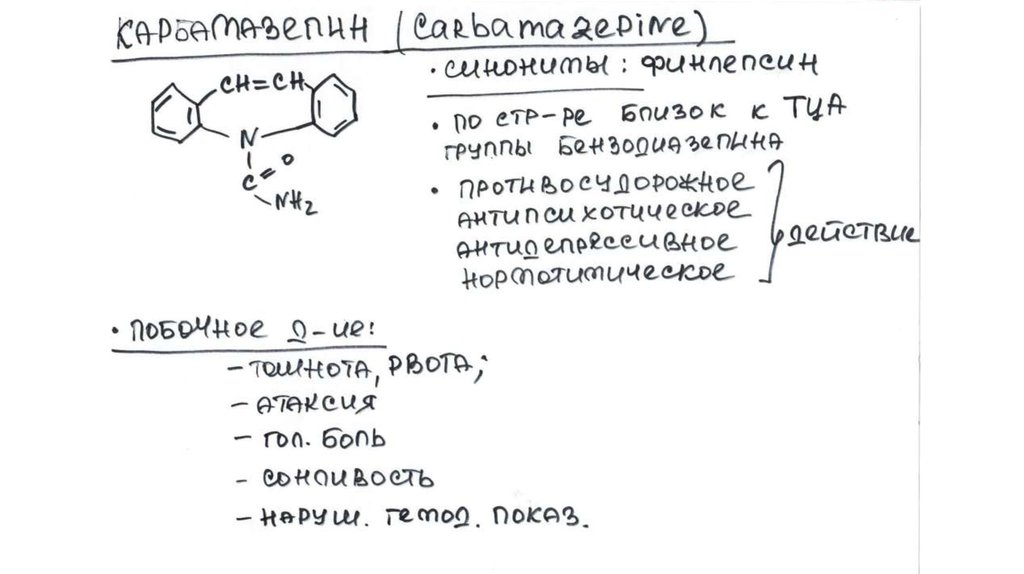 КАРБАМАЗЕПИН (Carbamazepine)
CH=CH
N
C
O
NH2
• СИНОНИМЫ: ФИНЛЕПСИН
• ПО СТР-РЕ БЛИЗОК К ТЦА
ГРУППЫ БЕНЗОДИАЗЕПИНА
• ПРОТИВОСУДОРОЖНОЕ
АНТИПСИХОТИЧЕСКОЕ
АНТИДЕПРЕССИВНОЕ
НОРМОТИМИЧЕСКОЕ
ДЕЙСТВИЕ
• ПОБОЧНОЕ Д-ИЕ:
- ТОШНОТА, РВОТА;
- АТАКСИЯ
- ГОЛ. БОЛЬ
- СОНЛИВОСТЬ
- НАРУШ. ГЕМОД. ПОКАЗ.